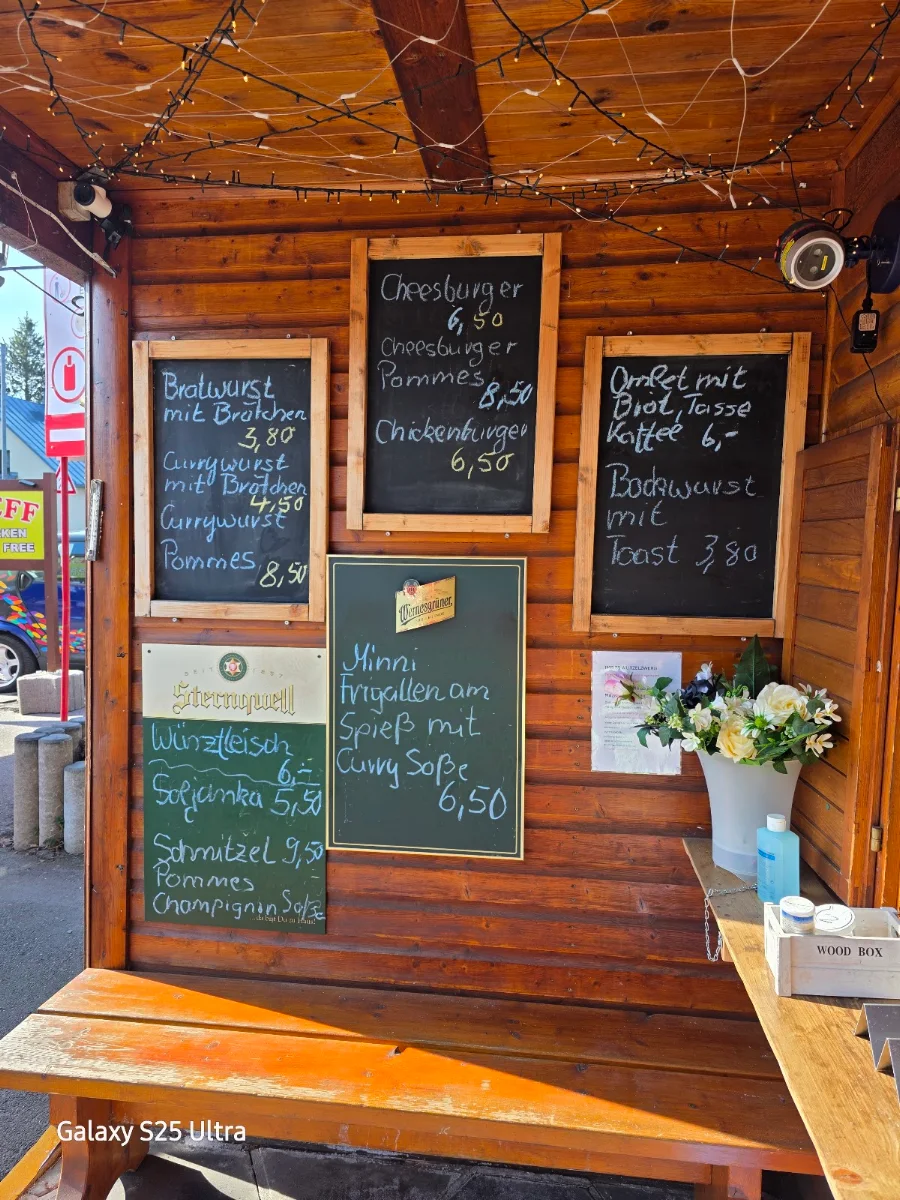 Cheesburger
6,50
Cheesburger
Pommes
8,50
Chickenburger
6,50
Bratwurst
mit Brötchen
3,80
Currywurst
mit Brötchen
4,50
Currywurst
Pommes
8,50
Omlet mit
Brot, Tasse
Kaffee 6,-
Bockwurst
mit
Toast 3,80
Wernesgrüner
Minni
Frigallen am
Spieß mit
Curry Soße
6,50
Sternquell
Würzfleisch
6,-
Soljanka 5,50
Schnitzel 9,50
Pommes
Champignin Soße
EFF
KEN
FREE
WOOD BOX
Galaxy S25 Ultra